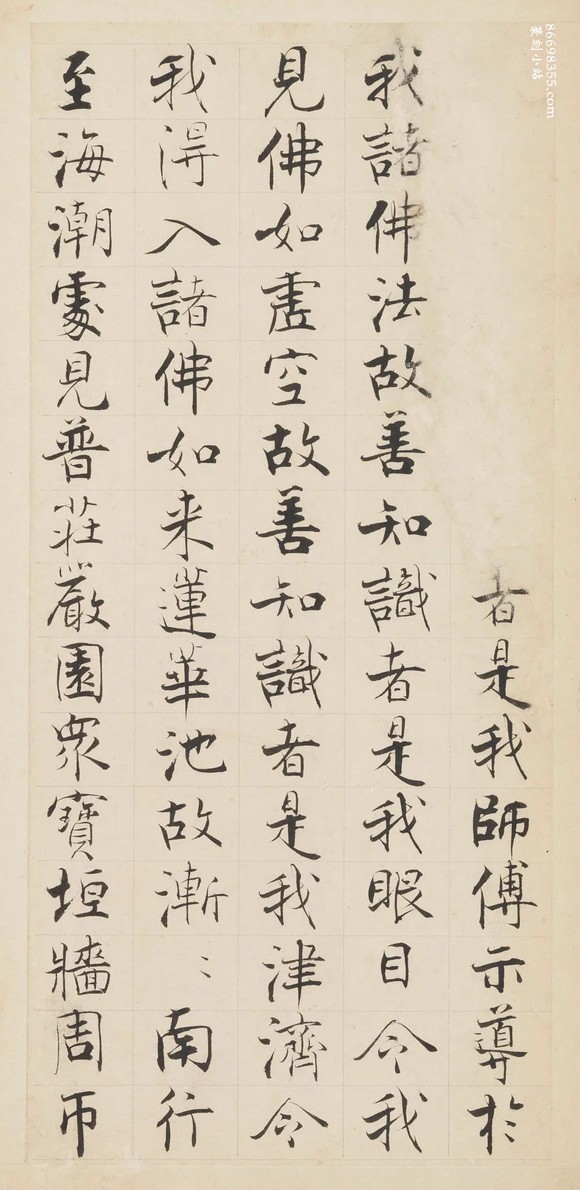 者是我師傅示導於
我諸佛法故善知識者是我眼目令我
見佛如虛空故善知識者是我津濟令
我得入諸佛如来蓮華池故漸〻南行
至海潮處見普莊嚴園眾寶垣牆周帀
86698355.com
篆刻小站